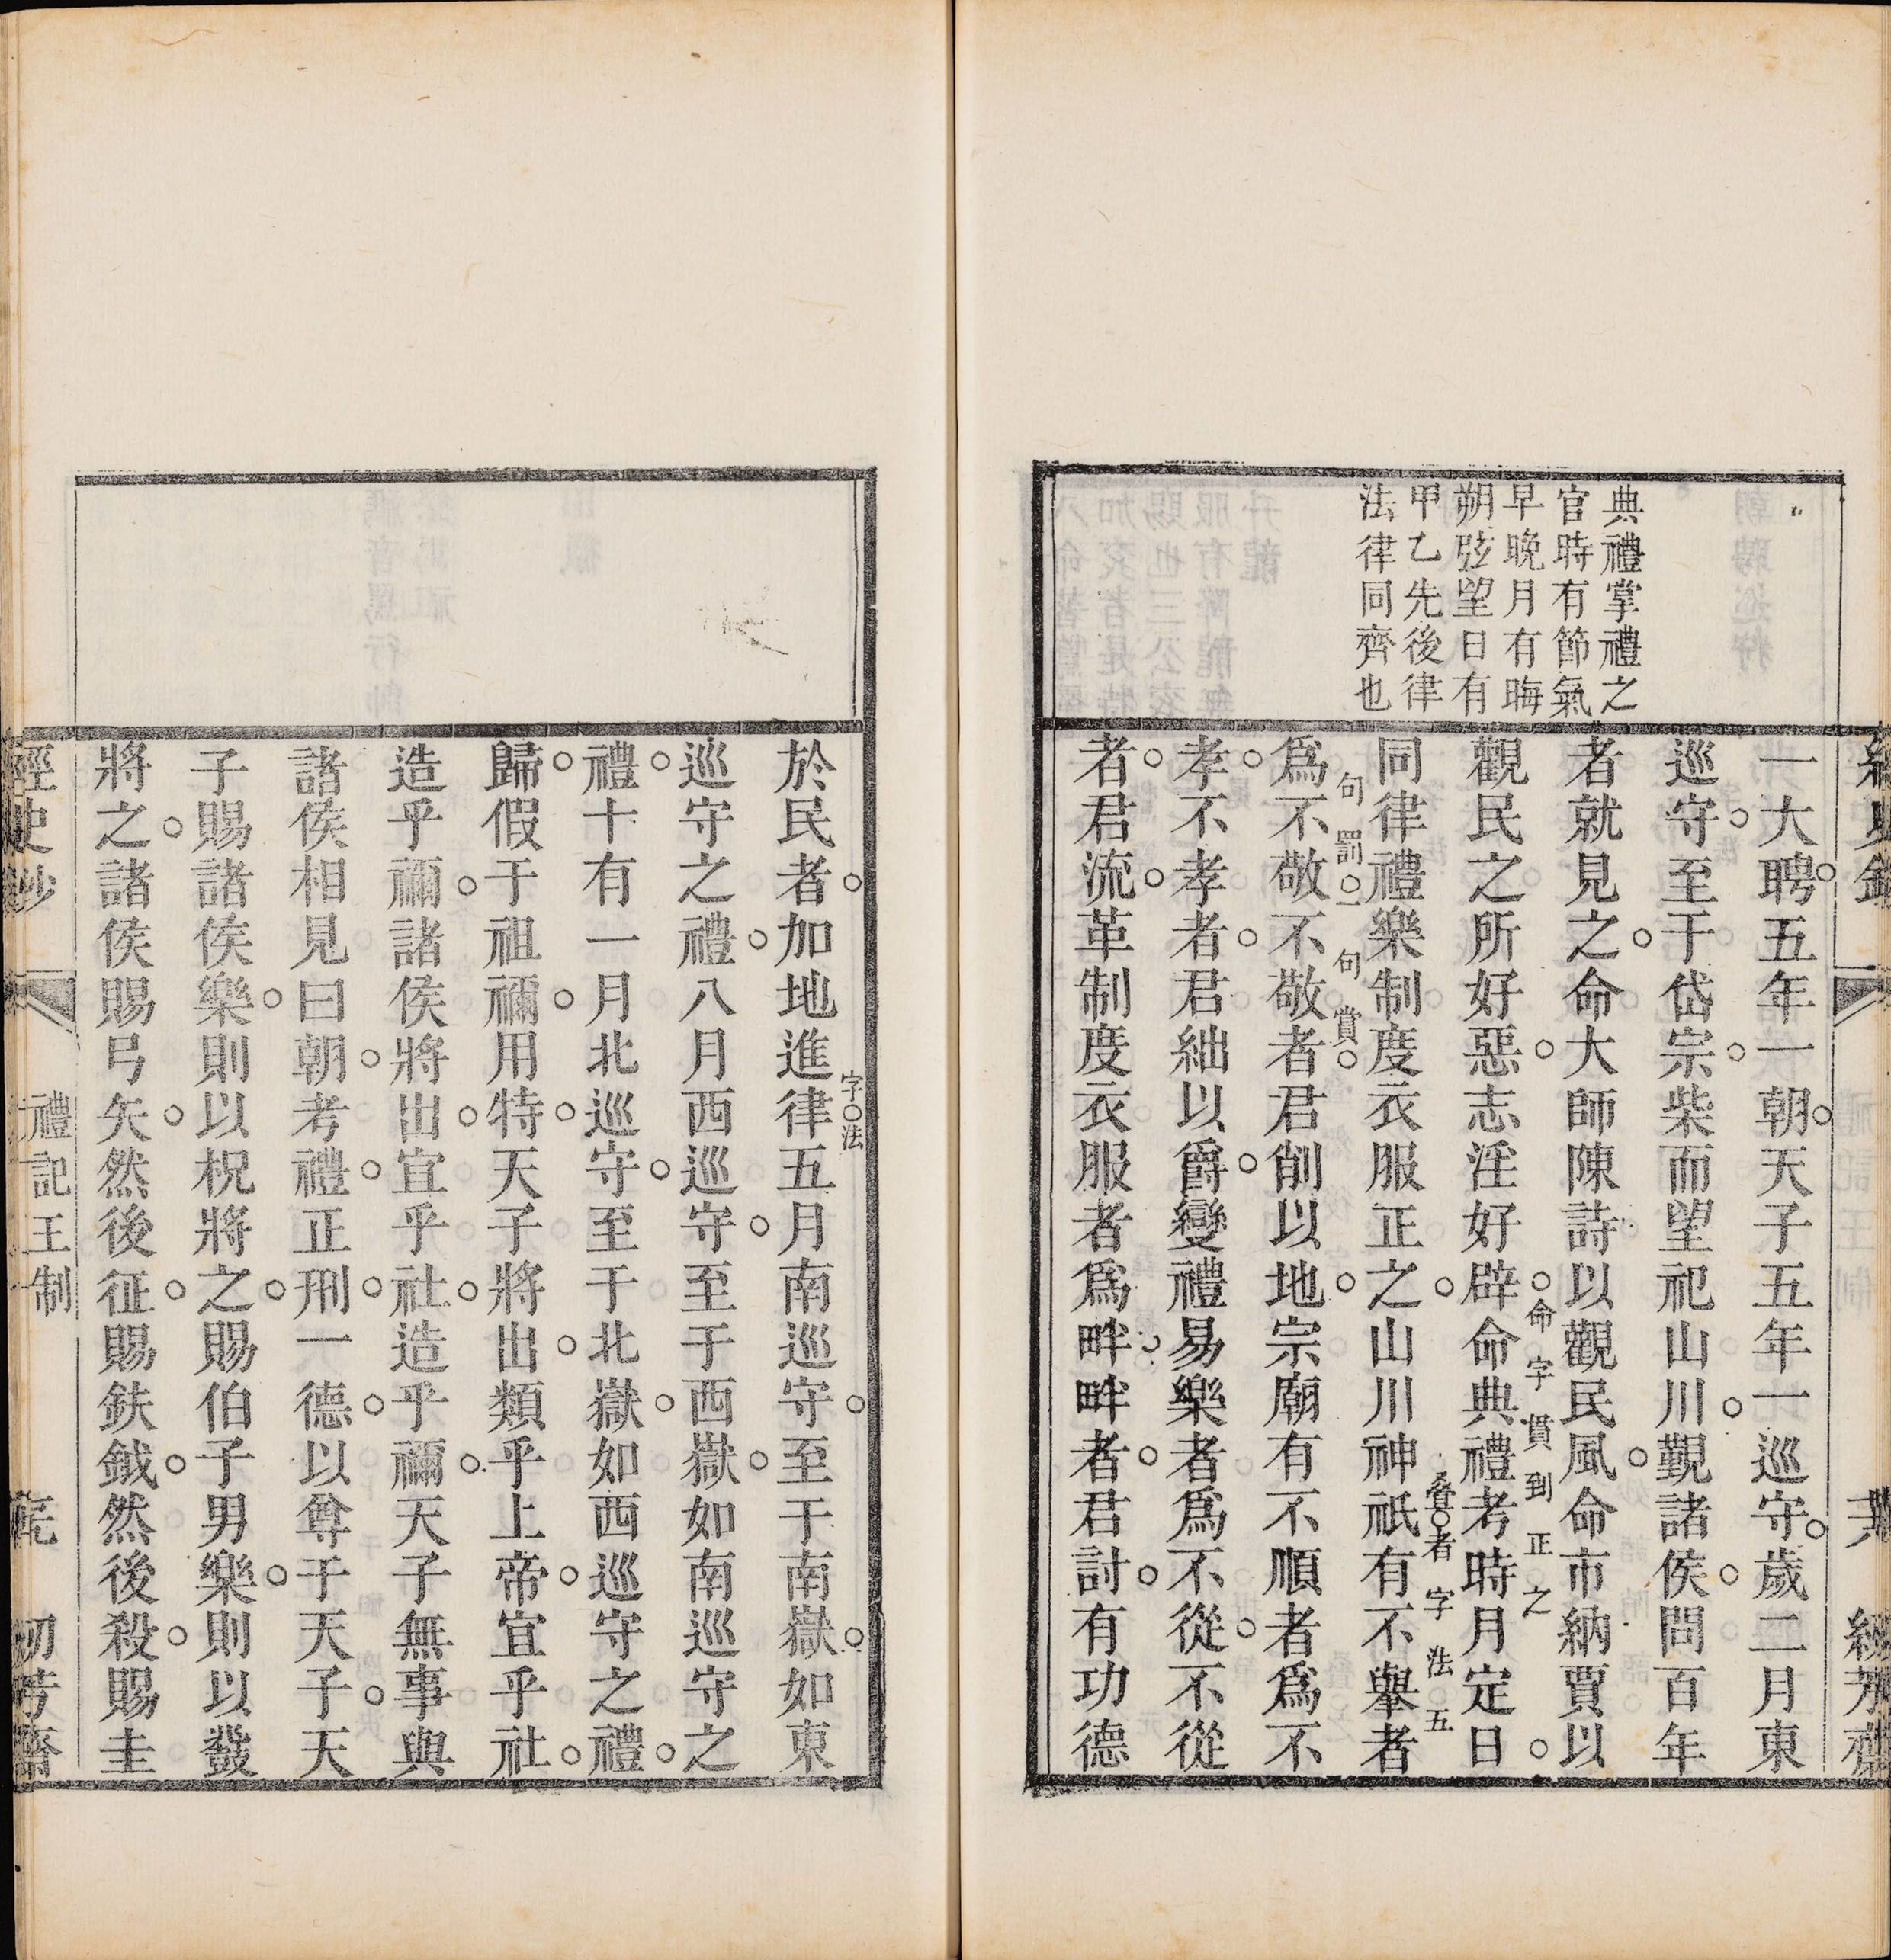 典禮掌禮之
官時有節氣
早晚月有晦
朔弦望日有
甲乙先後律
法律同齊也
一大聘五年一朝天子五年一巡守歲二月東
巡守至于岱宗柴而望祀山川覲諸侯問百年
者就見之命大師陳詩以觀民風命市納賈以
觀民之所好惡志淫好辟命典禮考時月定日
命字貫到正之
同律禮樂制度衣服正之山川神祇有不舉者
疊者字法五
為不敬不敬者君削以地宗廟有不順者為不
句罰一句賞
孝不孝者君絀以爵變禮易樂者為不從不從
者君流革制度衣服者為畔畔者君討有功德
於民者加地進律五月南巡守至于南嶽如東
字法
巡守之禮八月西巡守至于西嶽如南巡守之
禮十有一月北巡守至于北嶽如西巡守之禮
歸假于祖禰用特天子將出類乎上帝宜乎社
造乎禰諸侯將出宜乎社造乎禰天子無事與
諸侯相見曰朝考禮正刑一德以尊于天子天
子賜諸侯樂則以柷將之賜伯子男樂則以鼗
將之諸侯賜弓矢然後征賜鈇鉞然後殺賜圭
經史鈔
禮記王制